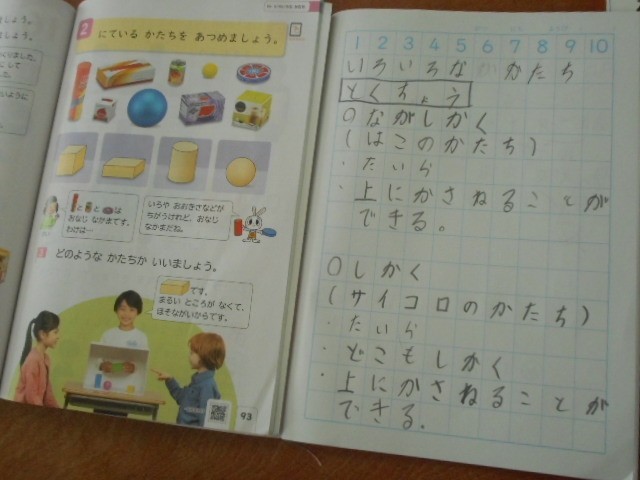 2 にている かたちを あつめましょう。
と と は
おなじ なかまです。
わけは…
いろや おおきさなどが
ちがうけれど、おなじ
なかまだね。
3 どのような かたちか いいましょう。
です。
まるい ところが なくて、
ほそながいからです。
93
1 2 3 4 5 6 7 8 9 10
いろいろな かたち
とくちょう
○ながしかく
(はこのかたち)
・たいら
・上にかさねることが
できる。
○しかく
(サイコロのかたち)
・たいら
・どこもしかく
・上にかさねることが
できる。